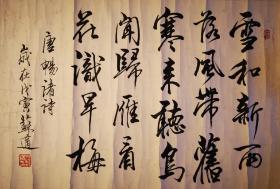 雪和新雨
落風帶舊
寒來聽鳥
聞歸雁看
花識早梅
唐暢諸詩
歲在戊寅蘇